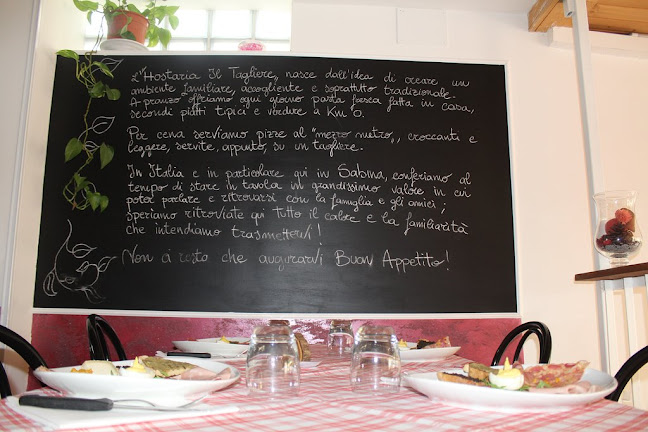 L'Hostaria Il Tagliere, nasce dall'idea di creare un
ambiente familiare, accogliente e soprattutto tradizionale.
A pranzo offriamo ogni giorno pasta fresca fatta in casa,
secondi piatti tipici e verdure a Km 0.
Per cena serviamo pizze al "mezzo metro", croccanti e
leggere, servite, appunto, su un tagliere.
In Italia e in particolare qui in Sabina, conferiamo al
tempo di stare in tavola un grandissimo valore in cui
poter parlare e ritrovarsi con la famiglia e gli amici;
speriamo ritroviate qui tutto il calore e la familiarità
che intendiamo trasmettervi!
Non ci resta che augurarvi Buon Appetito!